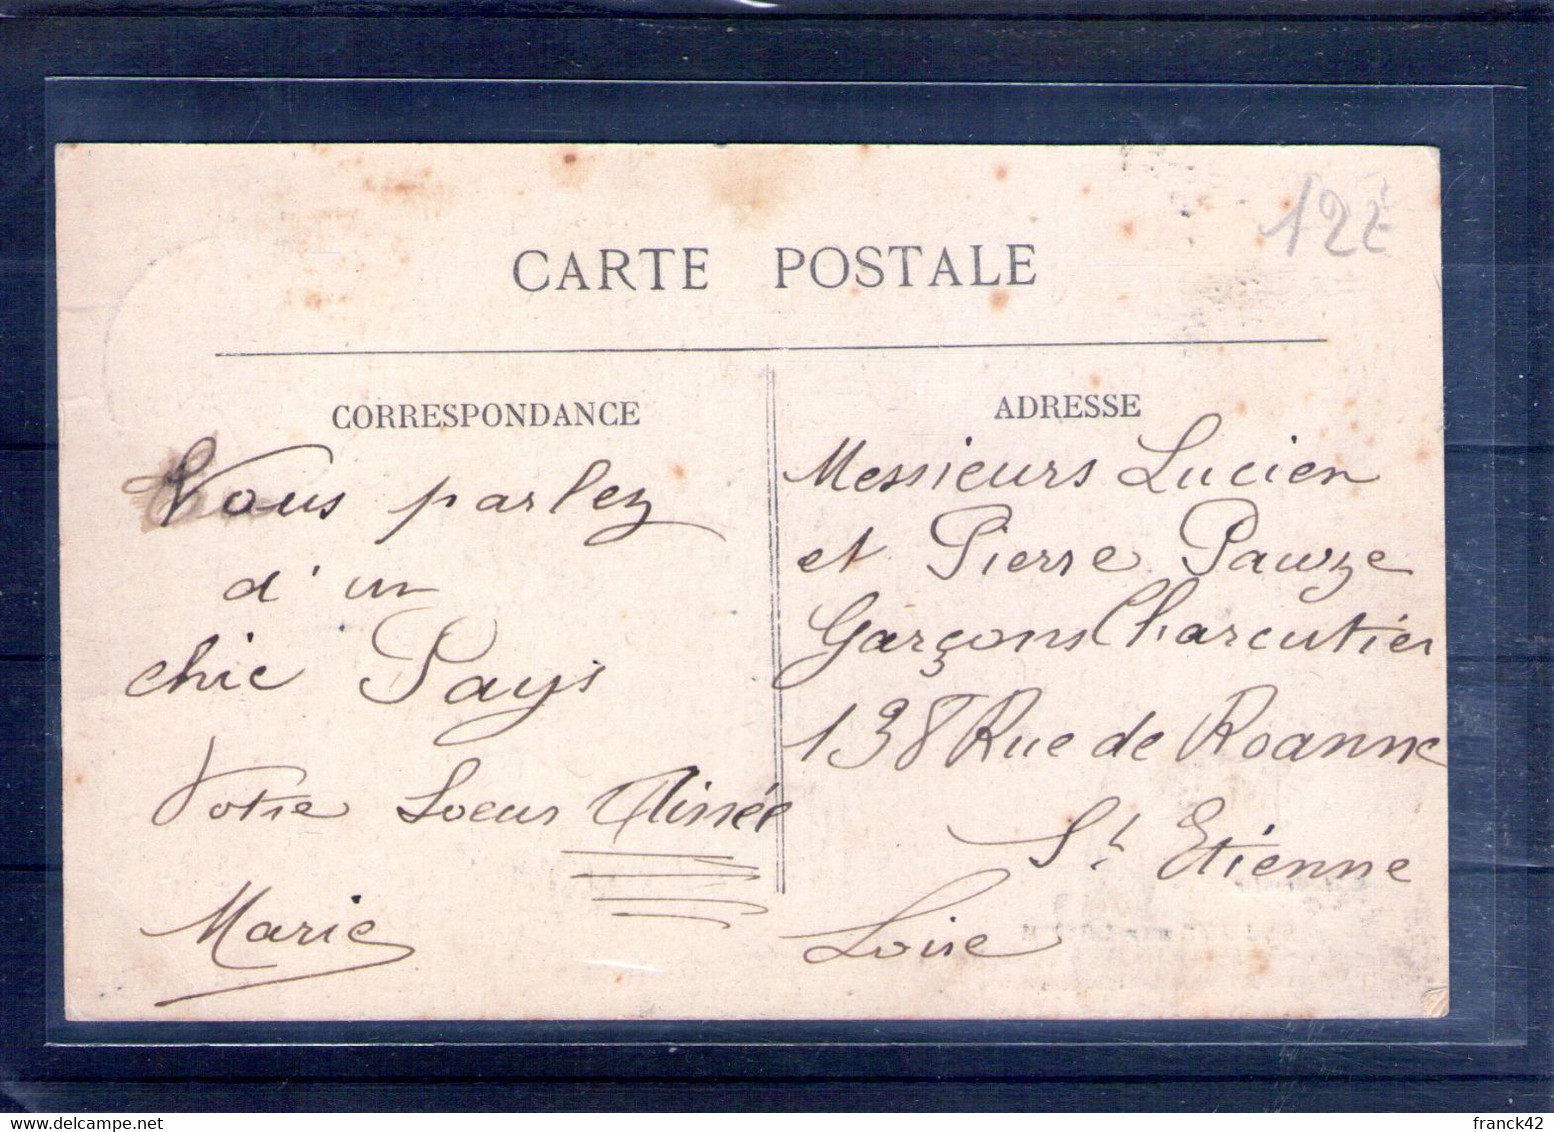 CARTE POSTALE
CORRESPONDANCE
Vous parlez
d'un
chic Pays
Votre Soeur Ainée
Marie
ADRESSE
Messieurs Lucien
et Pierre Pauze
Garçons Charcutier
138 Rue de Roanne
St Etienne
Loire
franck42